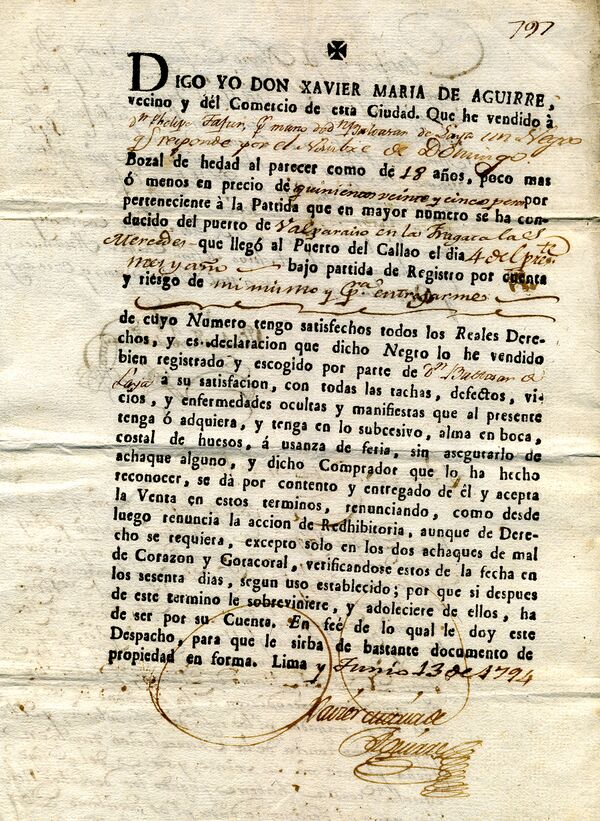 797
✠
DIGO YO DON XAVIER MARIA DE AGUIRRE,
vecino y dél Comercio de esta Ciudad. Que he vendido à
dn Phelipe mano de dn Baltasar de Laya un Negro
q responde por el Nombre de Domingo
Bozal de hedad al parecer como de 18 años, poco mas
ó menos en precio de quinientos veinte y cinco pesos por
perteneciente à la Partida que en mayor numero se ha con-
ducido del puerto de Valparaiso en la Fragata la S
Mercedes que llegó al Puerto del Callao el dia 4 del preste
mes y año bajo partida de Registro por cuenta
y riesgo de mi mismo y pra entregarme
de cuyo Numero tengo satisfechos todos los Reales Dere-
chos, y es declaracion que dicho Negro lo he vendido
bien registrado y escogido por parte de dn Baltasar de
Laya à su satisfacion, con todas las tachas, defectos, vi-
cios, y enfermedades ocultas y manifiestas que al presente
tenga ó adquiera, y tenga en lo subcesivo, alma en boca,
costal de huesos, á usanza de feria, sin asegurarlo de
achaque alguno, y dicho Comprador que lo ha hecho
reconocer, se dà por contento y entregado de él y acepta
la Venta en estos terminos, renunciando, como desde
luego renuncia la accion de Redhibitoria, aunque de Dere-
cho se requiera, excepto solo en los dos achaques de mal
de Corazon y Gotacoral, verificandose estos de la fecha en
los sesenta dias, segun uso establecido; por que si despues
de este termino le sobreviniere, y adoleciere de ellos, ha
de ser por su Cuenta. En feé de lo qual le doy este
Despacho, para que le sirba de bastante documento de
propiedad en forma. Lima y Junio 13 de 1794
Xavier Maria de
Aguirre